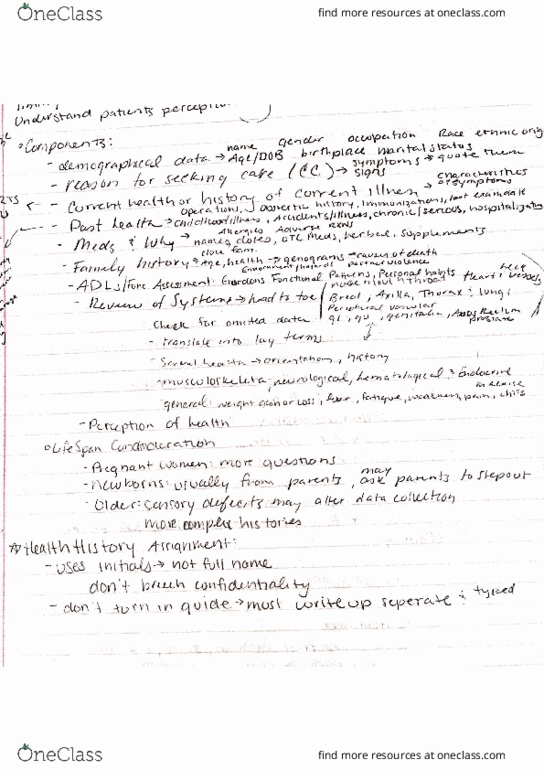 OneClass
find more resources at oneclass.com
Understand patients
Components:
name gender occupation Race ethnic orig
- demographical data → Age/DOB birthplace marital status
- reason for seeking care (CC) → symptoms → quote them
signs
characteristics
- Current health or history of current illness → of symptoms
operations, obstetric history, Immunizations, last exam date
- Past health → childhood illness, Accidents/illness, chronic/serious, hospitalizations
Allergies Adverse
- Meds & Why → names, doses, OTC Meds, herbal, supplements
- Family history → Age, health → genograms → cause of death
partner violence
- ADLs/Func Assessment: Functional Patterns, Personal habits
neck
Heart & vessels
- Review of Systems → head to toe
Axilla, Thorax & lungs
Peripheral vascular
GI, GU, genitalia, Rectum
prostate
Check for omited data
- translate into lay terms
- Sexual health → orientation, history
- musculoskeletal, neurological, hematological & Endocrine
general: weight gain or loss, fever, fatigue, weakness, pain, chills
- Perception of health
LifeSpan Consideration
- Pregnant women: more questions
- newborns: usually from parents, may ask parents to step out
- Older: sensory defecits may alter data collection
more complex histories
Health History Assignment:
- uses initials → not full name
don't breech confidentiality
- don't turn in guide → must write up seperate & typed
OneClass
find more resources at oneclass.com